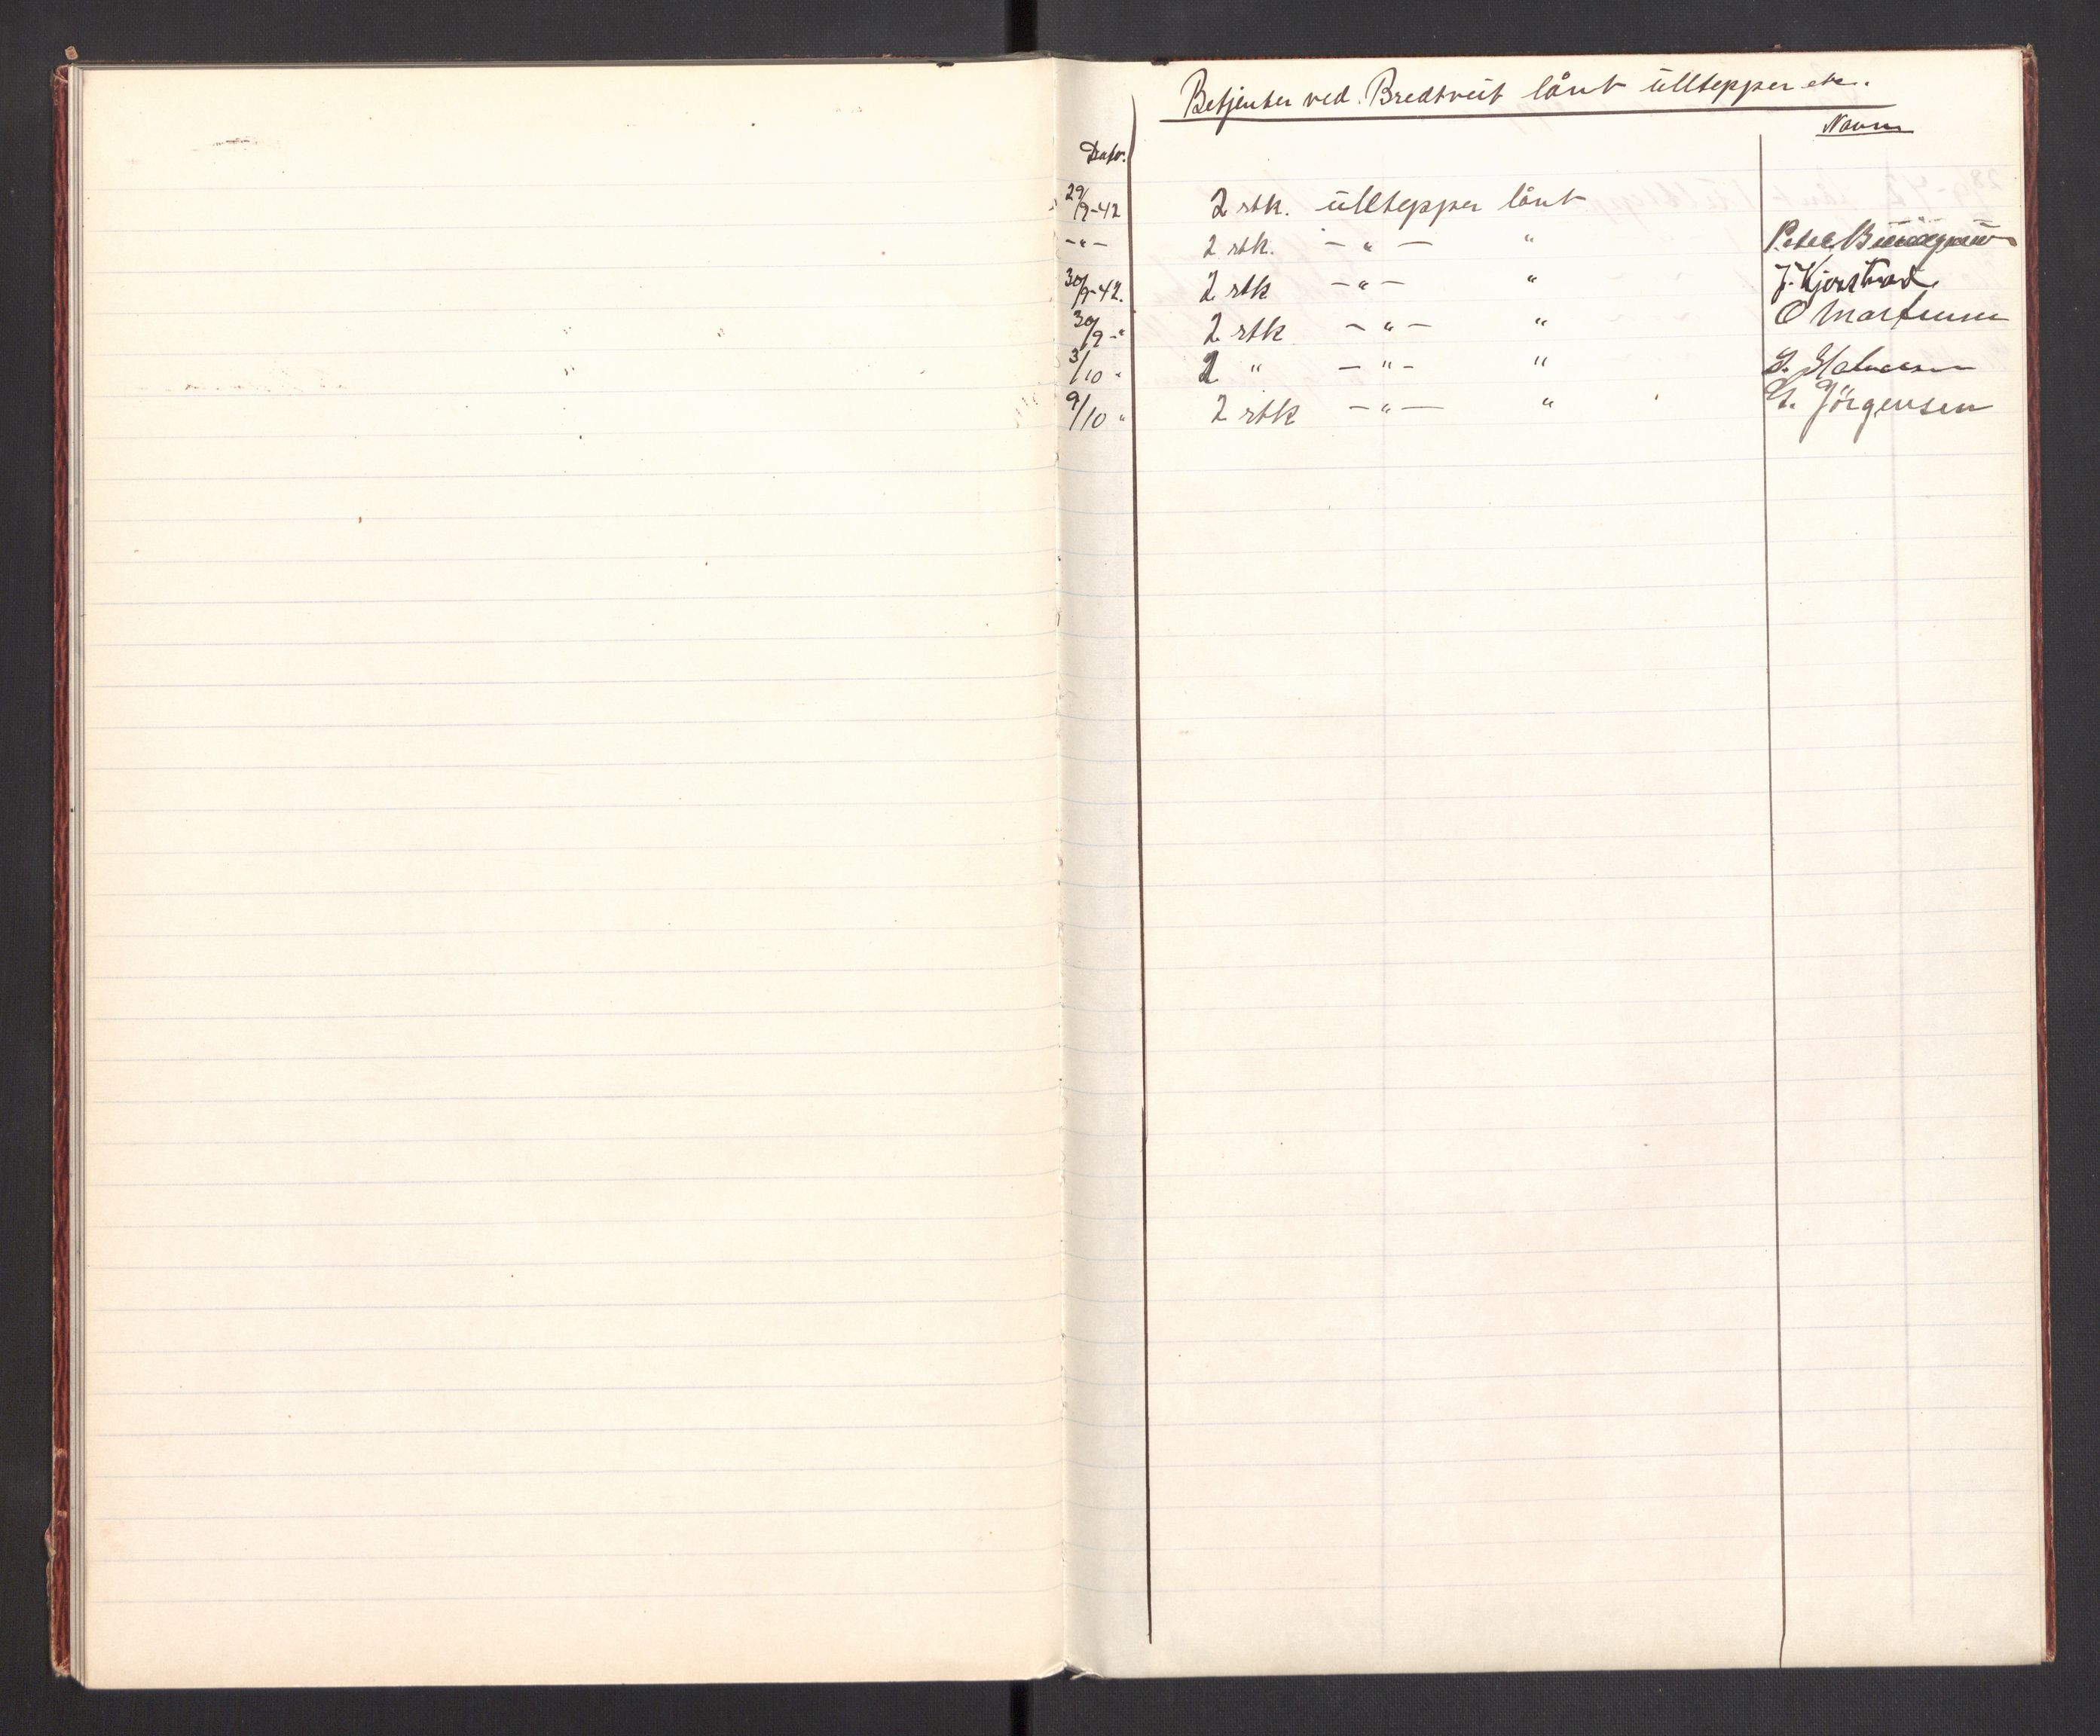 Betjenter ved. Bredtveit lånt ülltepper etc.
Navn
Dato.
29/9-42 2 stk. ülltepper lånt
-"- 2 stk. - " - " Peter
30/9-42. 2 stk - " - " J. Kjostvad.
30/9-" 2 stk - " - " O Martinsen
3/10 " 2 " - " - " S. Halvorsen
9/10 " 2 stk - " - " G. Jörgensen